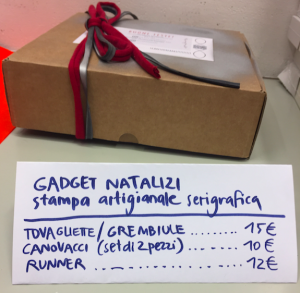 GADGET NATALIZI
stampa artigianale serigrafica
TOVAGLIETE/GREMBIULE ........ 15€
CANOVACCI (set di 2 pezzi) ....... 10€
RUNNER .................. 12€